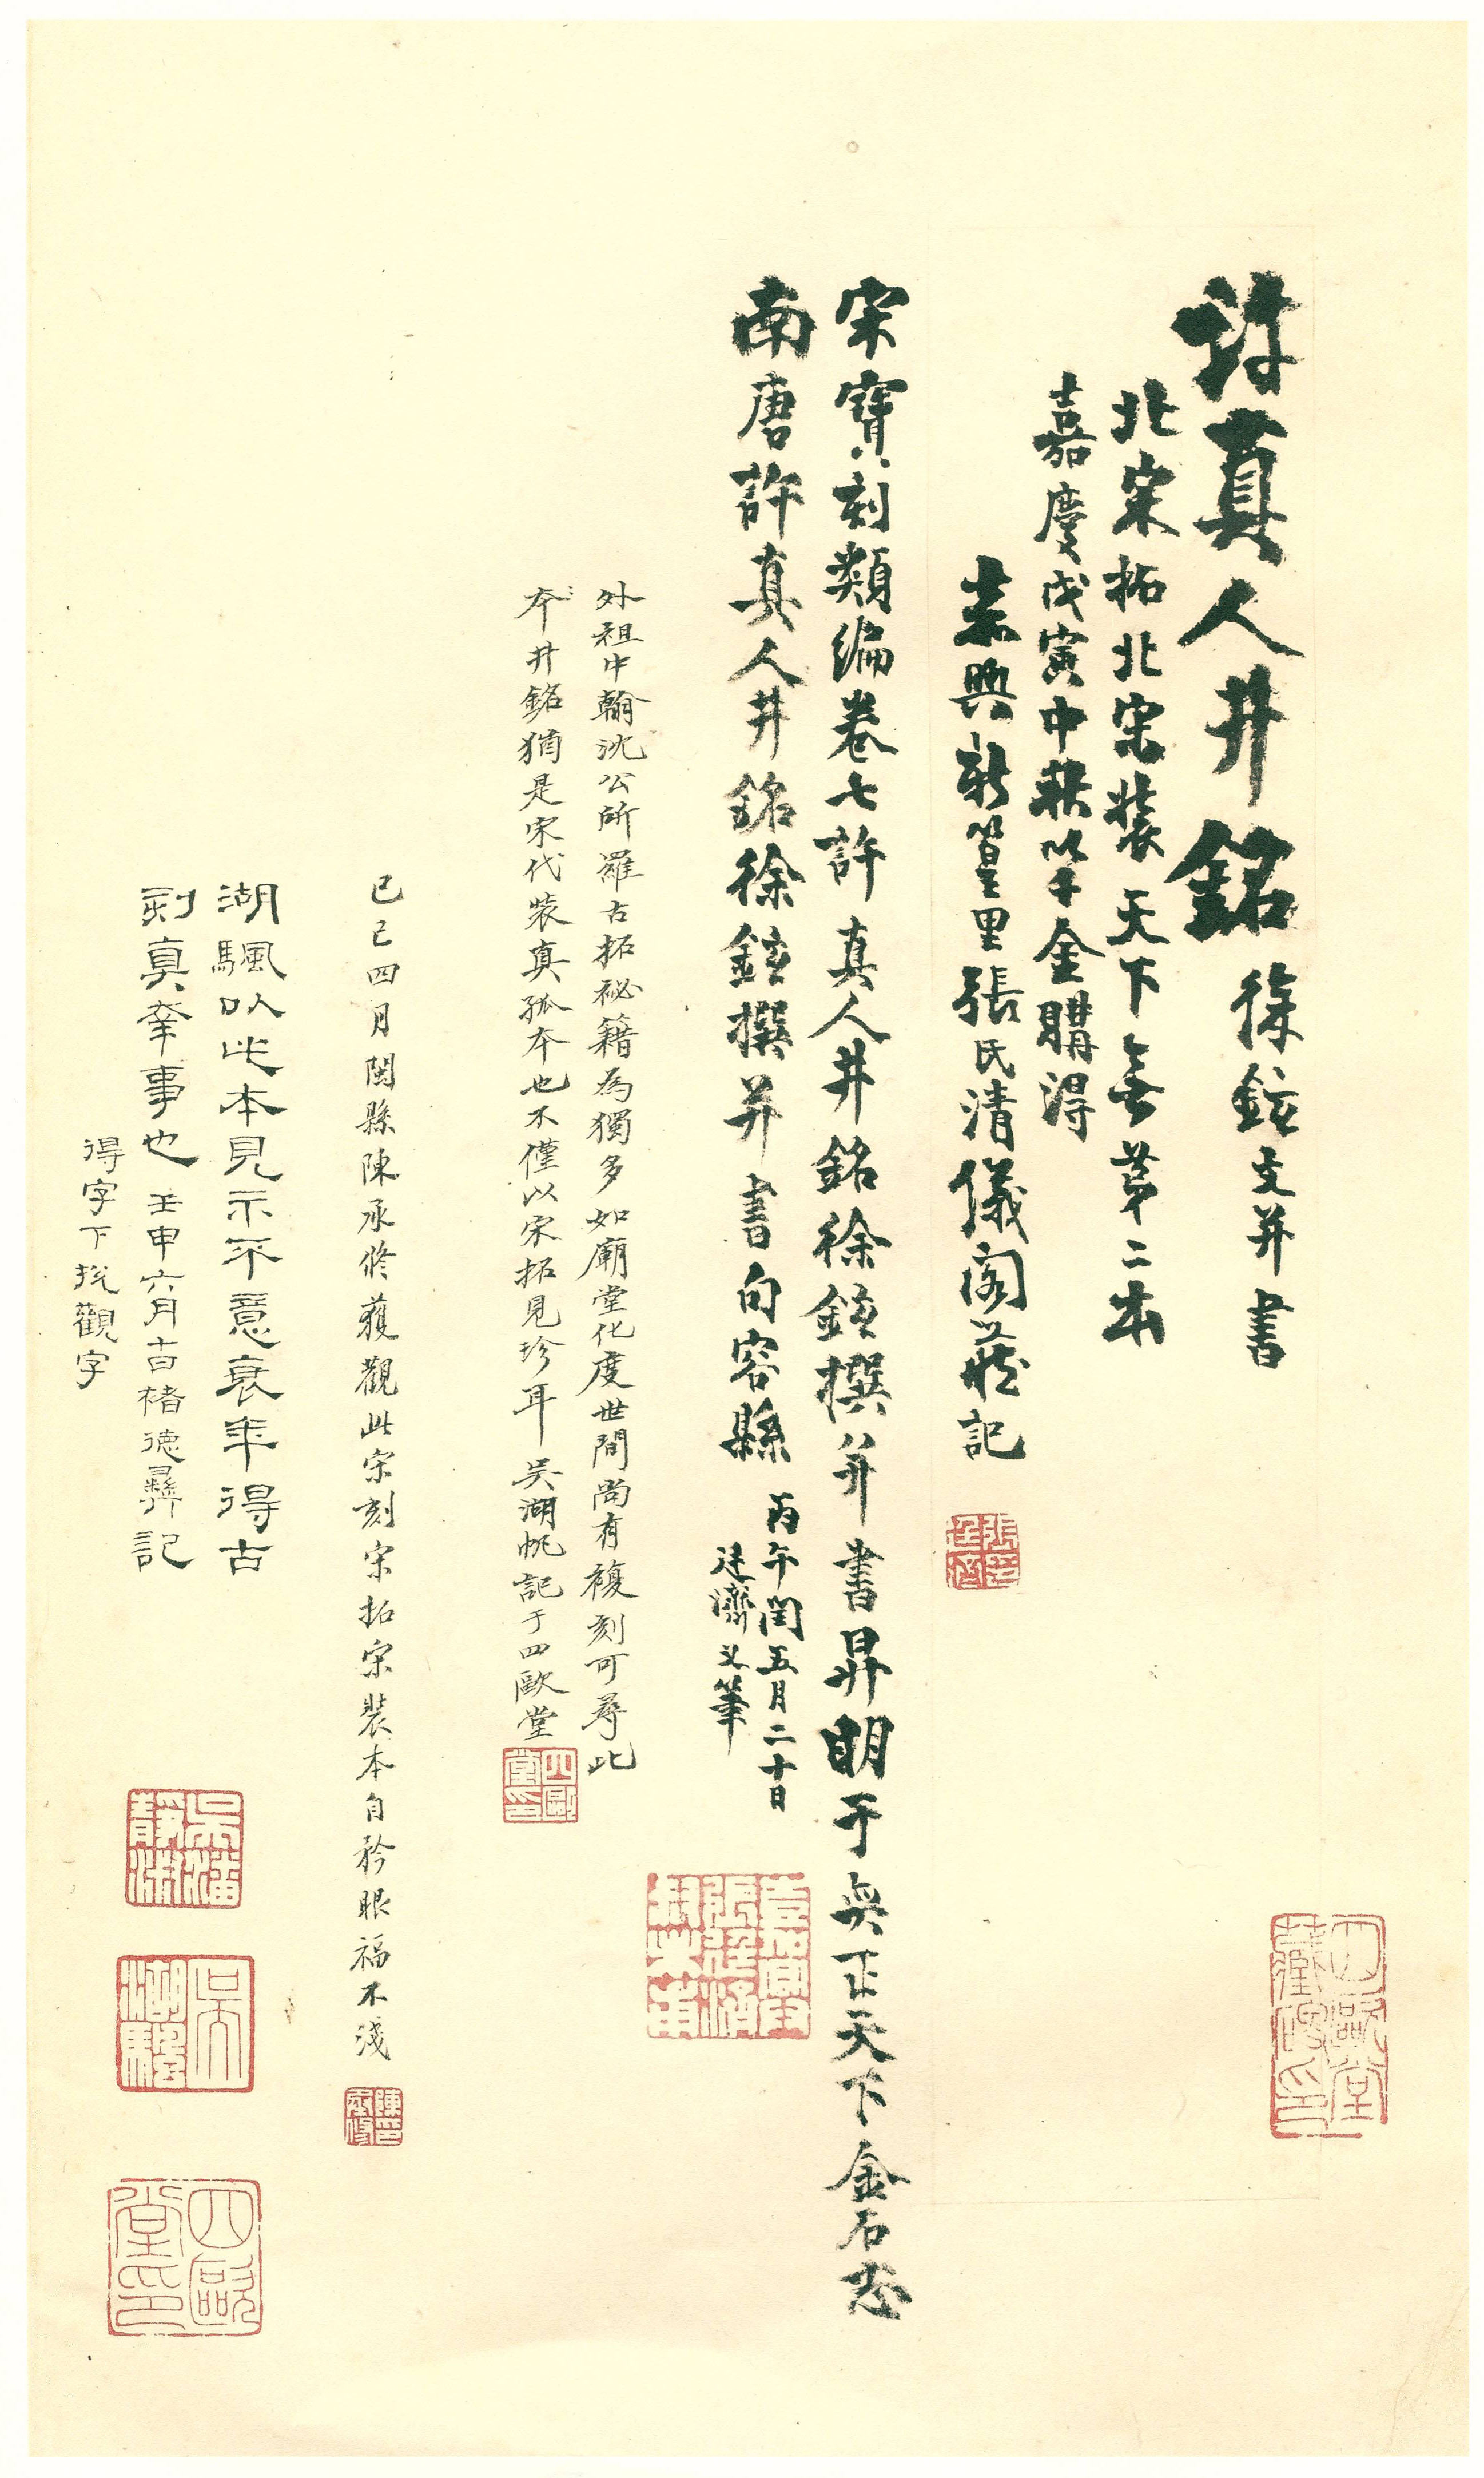 許真人井銘 徐鉉文并書
北宋拓北宋裝天下無第二本
嘉慶戊寅中秋以廿金購得
嘉興新篁里張氏清儀閣藏記
宋寶刻類編卷七許真人井銘徐鉉撰并書昇明于奭正天下金石志
南唐許真人井銘徐鉉撰并書句容縣 丙午閏五月二十日
廷濟又筆
外祖中翰沈公所羅古拓祕籍為獨多如廟堂化度世間尚有複刻可尋此
本井銘猶是宋代裝真孤本也不僅以宋拓見珍耳 吳湖帆記于四歐堂
四歐堂印
己巳四月閩縣陳承修獲觀此宋刻宋拓宋裝本自矜眼福不淺
陳印承修
湖颿以此本見示不意衰年得古
刻真幸事也 壬申六月十一日褚德彝記
得字下挩觀字
吳潘靜淑
吳湖驪
四歐堂印